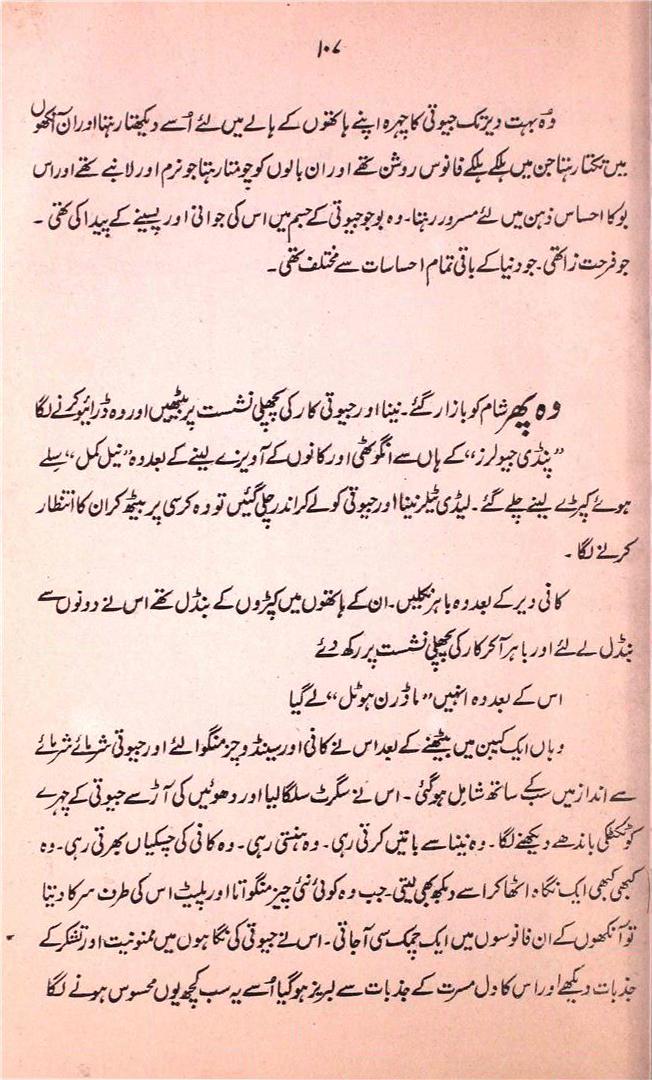 ۱۰۷
وہ بہت دیر تک جیوتی کا چہرہ اپنے ہاتھوں کے ہالے میں لئے اُسے دیکھتا رہتا اور ان آنکھوں
میں تکتا رہتا جن میں ہلکے ہلکے فانوس روشن تھے اور ان بالوں کو چومتا رہتا جو نرم اور لانبے تھے اور اس
بو کا احساس ذہن میں لئے مسرور رہتا۔ وہ بو جو جیوتی کے جسم میں اس کی جوانی اور پسینے کے پیدا کی تھی ۔
جو فرحت زا تھی۔ جو دنیا کے باقی تمام احساسات سے مختلف تھی۔
وہ پھر شام کو بازار گئے۔ نینا اور جیوتی کار کی پچھلی نشست پر بیٹھیں اور وہ ڈرائیو کرنے لگا
”پنڈی جیولرز“ کے ہاں سے انگوٹھی اور کانوں کے آویزے لینے کے بعد وہ ”نیل کمل“ سِلے
ہوئے کپڑے لینے چلے گئے۔ لیڈی ٹیلر نینا اور جیوتی کو لے کر اندر چلی گئیں تو وہ کرسی پر بیٹھ کر ان کا انتظار
کرنے لگا ۔
کافی دیر کے بعد وہ باہر نکلیں۔ ان کے ہاتھوں میں کپڑوں کے بنڈل تھے اس نے دونوں سے
بنڈل لے لئے اور باہر آ کر کار کی پچھلی نشست پر رکھ دئے
اس کے بعد وہ انہیں ”ماڈرن ہوٹل“ لے گیا
وہاں ایک کیبن میں بیٹھنے کے بعد اس نے کافی اور سینڈوچز منگوا لئے اور جیوتی شرمائے شرمائے
سے انداز میں سب کے ساتھ شامل ہو گئی ۔ اس نے سگرٹ سلگا لیا اور دھوئیں کی آڑ سے جیوتی کے چہرے
کو ٹکٹکی باندھے دیکھنے لگا۔ وہ نینا سے باتیں کرتی رہی۔ وہ ہنستی رہی۔ وہ کافی کی چسکیاں بھرتی رہی۔ وہ
کبھی کبھی ایک نگاہ اٹھا کر اسے دیکھ بھی لیتی۔ جب وہ کوئی نئی چیز منگواتا اور پلیٹ اس کی طرف سرکا دیتا
تو آنکھوں کے ان فانوسوں میں ایک چمک سی آ جاتی ۔ اس نے جیوتی کی نگاہوں میں ممنونیت اور تشکر کے
جذبات دیکھے اور اس کا دل مسرت کے جذبات سے لبریز ہو گیا اُسے یہ سب کچھ یوں محسوس ہونے لگا